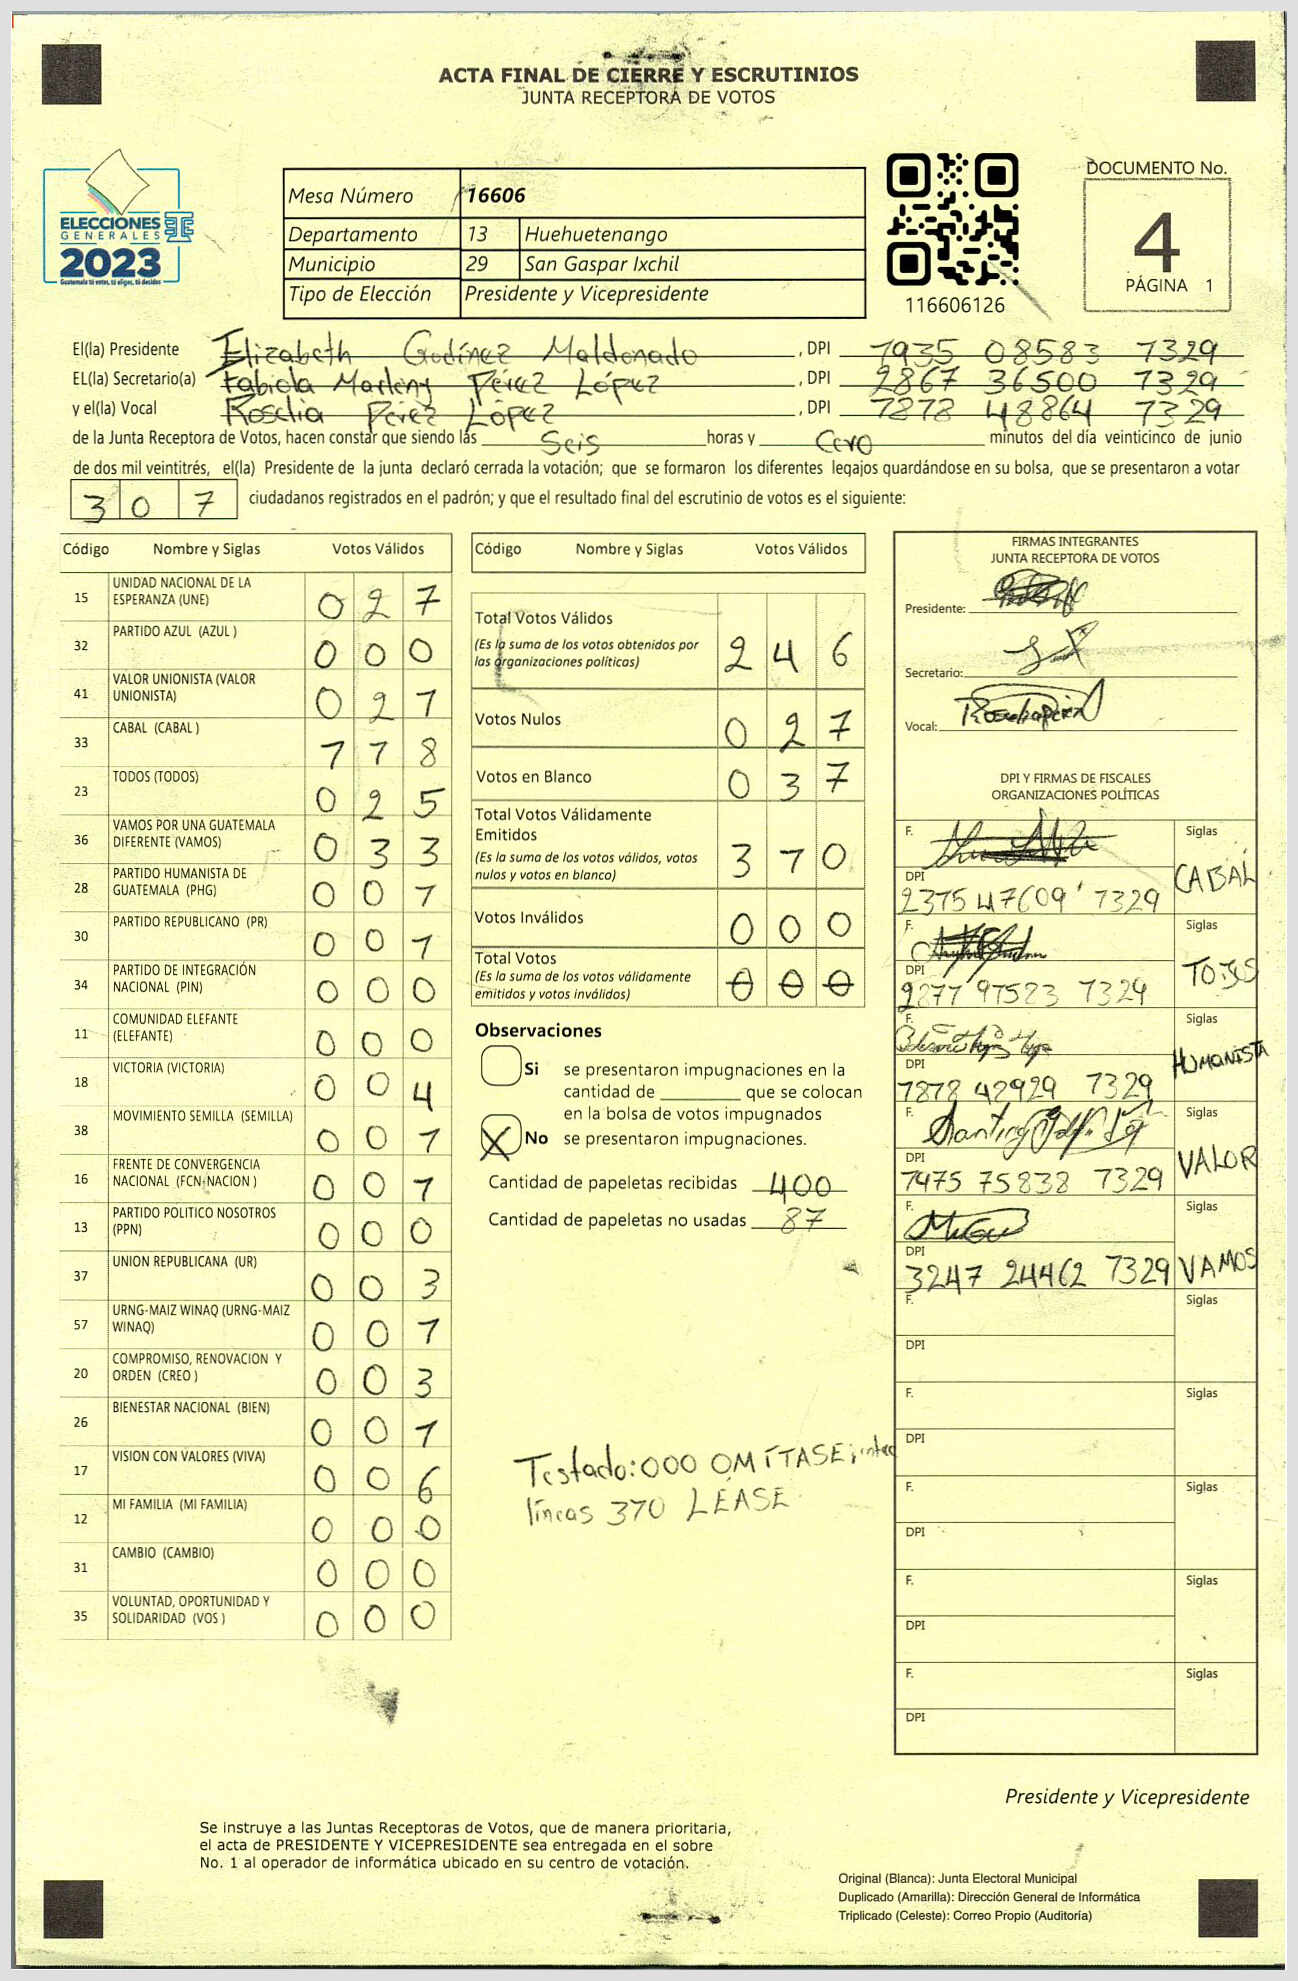 ACTA FINAL DE CIERRE Y ESCRUTINIOS
JUNTA RECEPTORA DE VOTOS
ELECCIONES
GENERALES
2023
Guatemala tú votas, tú eliges, tú decides
Mesa Número 16606
Departamento 13 Huehuetenango
Municipio 29 San Gaspar Ixchil
Tipo de Elección Presidente y Vicepresidente
116606126
DOCUMENTO No.
4
PÁGINA 1
El(la) Presidente Elizabeth Godínez Maldonado, DPI 7935 08583 7329
EL(la) Secretario(a) Fabiola Marleny Pérez López, DPI 2867 36500 7329
y el(la) Vocal Roselia Pérez López, DPI 7878 48864 7329
de la Junta Receptora de Votos, hacen constar que siendo las Seis horas y Cero minutos del día veinticinco de junio
de dos mil veintitrés, el(la) Presidente de la junta declaró cerrada la votación; que se formaron los diferentes legajos quardándose en su bolsa, que se presentaron a votar
307 ciudadanos registrados en el padrón; y que el resultado final del escrutinio de votos es el siguiente:
Código Nombre y Siglas Votos Válidos
15 UNIDAD NACIONAL DE LA ESPERANZA (UNE) 0 2 7
32 PARTIDO AZUL (AZUL ) 0 0 0
41 VALOR UNIONISTA (VALOR UNIONISTA) 0 2 7
33 CABAL (CABAL ) 1 1 8
23 TODOS (TODOS) 0 2 5
36 VAMOS POR UNA GUATEMALA DIFERENTE (VAMOS) 0 3 3
28 PARTIDO HUMANISTA DE GUATEMALA (PHG) 0 0 1
30 PARTIDO REPUBLICANO (PR) 0 0 1
34 PARTIDO DE INTEGRACIÓN NACIONAL (PIN) 0 0 0
11 COMUNIDAD ELEFANTE (ELEFANTE) 0 0 0
18 VICTORIA (VICTORIA) 0 0 4
38 MOVIMIENTO SEMILLA (SEMILLA) 0 0 1
16 FRENTE DE CONVERGENCIA NACIONAL (FCN-NACION ) 0 0 1
13 PARTIDO POLITICO NOSOTROS (PPN) 0 0 0
37 UNION REPUBLICANA (UR) 0 0 3
57 URNG-MAIZ WINAQ (URNG-MAIZ WINAQ) 0 0 1
20 COMPROMISO, RENOVACION Y ORDEN (CREO ) 0 0 3
26 BIENESTAR NACIONAL (BIEN) 0 0 1
17 VISION CON VALORES (VIVA) 0 0 6
12 MI FAMILIA (MI FAMILIA) 0 0 0
31 CAMBIO (CAMBIO) 0 0 0
35 VOLUNTAD, OPORTUNIDAD Y SOLIDARIDAD (VOS ) 0 0 0
Código Nombre y Siglas Votos Válidos
Total Votos Válidos
(Es la suma de los votos obtenidos por
las organizaciones políticas) 2 4 6
Votos Nulos 0 2 7
Votos en Blanco 0 3 7
Total Votos Válidamente
Emitidos
(Es la suma de los votos válidos, votos
nulos y votos en blanco) 3 1 0
Votos Inválidos 0 0 0
Total Votos
(Es la suma de los votos válidamente
emitidos y votos inválidos) 0 0 0
Observaciones
Si se presentaron impugnaciones en la
cantidad de ________ que se colocan
en la bolsa de votos impugnados
X No se presentaron impugnaciones.
Cantidad de papeletas recibidas 400
Cantidad de papeletas no usadas 87
Testado: 000 OMÍTASE; entre
líneas 310 LÉASE
FIRMAS INTEGRANTES
JUNTA RECEPTORA DE VOTOS
Presidente:
Secretario:
Vocal:
DPI Y FIRMAS DE FISCALES
ORGANIZACIONES POLÍTICAS
F. Siglas
DPI 2375 47609 7329 CABAL
F. Siglas
DPI 2277 97523 7329 TODOS
F. Siglas
DPI 7878 42929 7329 HUMANISTA
F. Siglas
DPI 7475 75838 7329 VALOR
F. Siglas
DPI 3247 24462 7329 VAMOS
F. Siglas
DPI
F. Siglas
DPI
F. Siglas
DPI
F. Siglas
DPI
F. Siglas
DPI
Presidente y Vicepresidente
Se instruye a las Juntas Receptoras de Votos, que de manera prioritaria,
el acta de PRESIDENTE Y VICEPRESIDENTE sea entregada en el sobre
No. 1 al operador de informática ubicado en su centro de votación.
Original (Blanca): Junta Electoral Municipal
Duplicado (Amarilla): Dirección General de Informática
Triplicado (Celeste): Correo Propio (Auditoría)